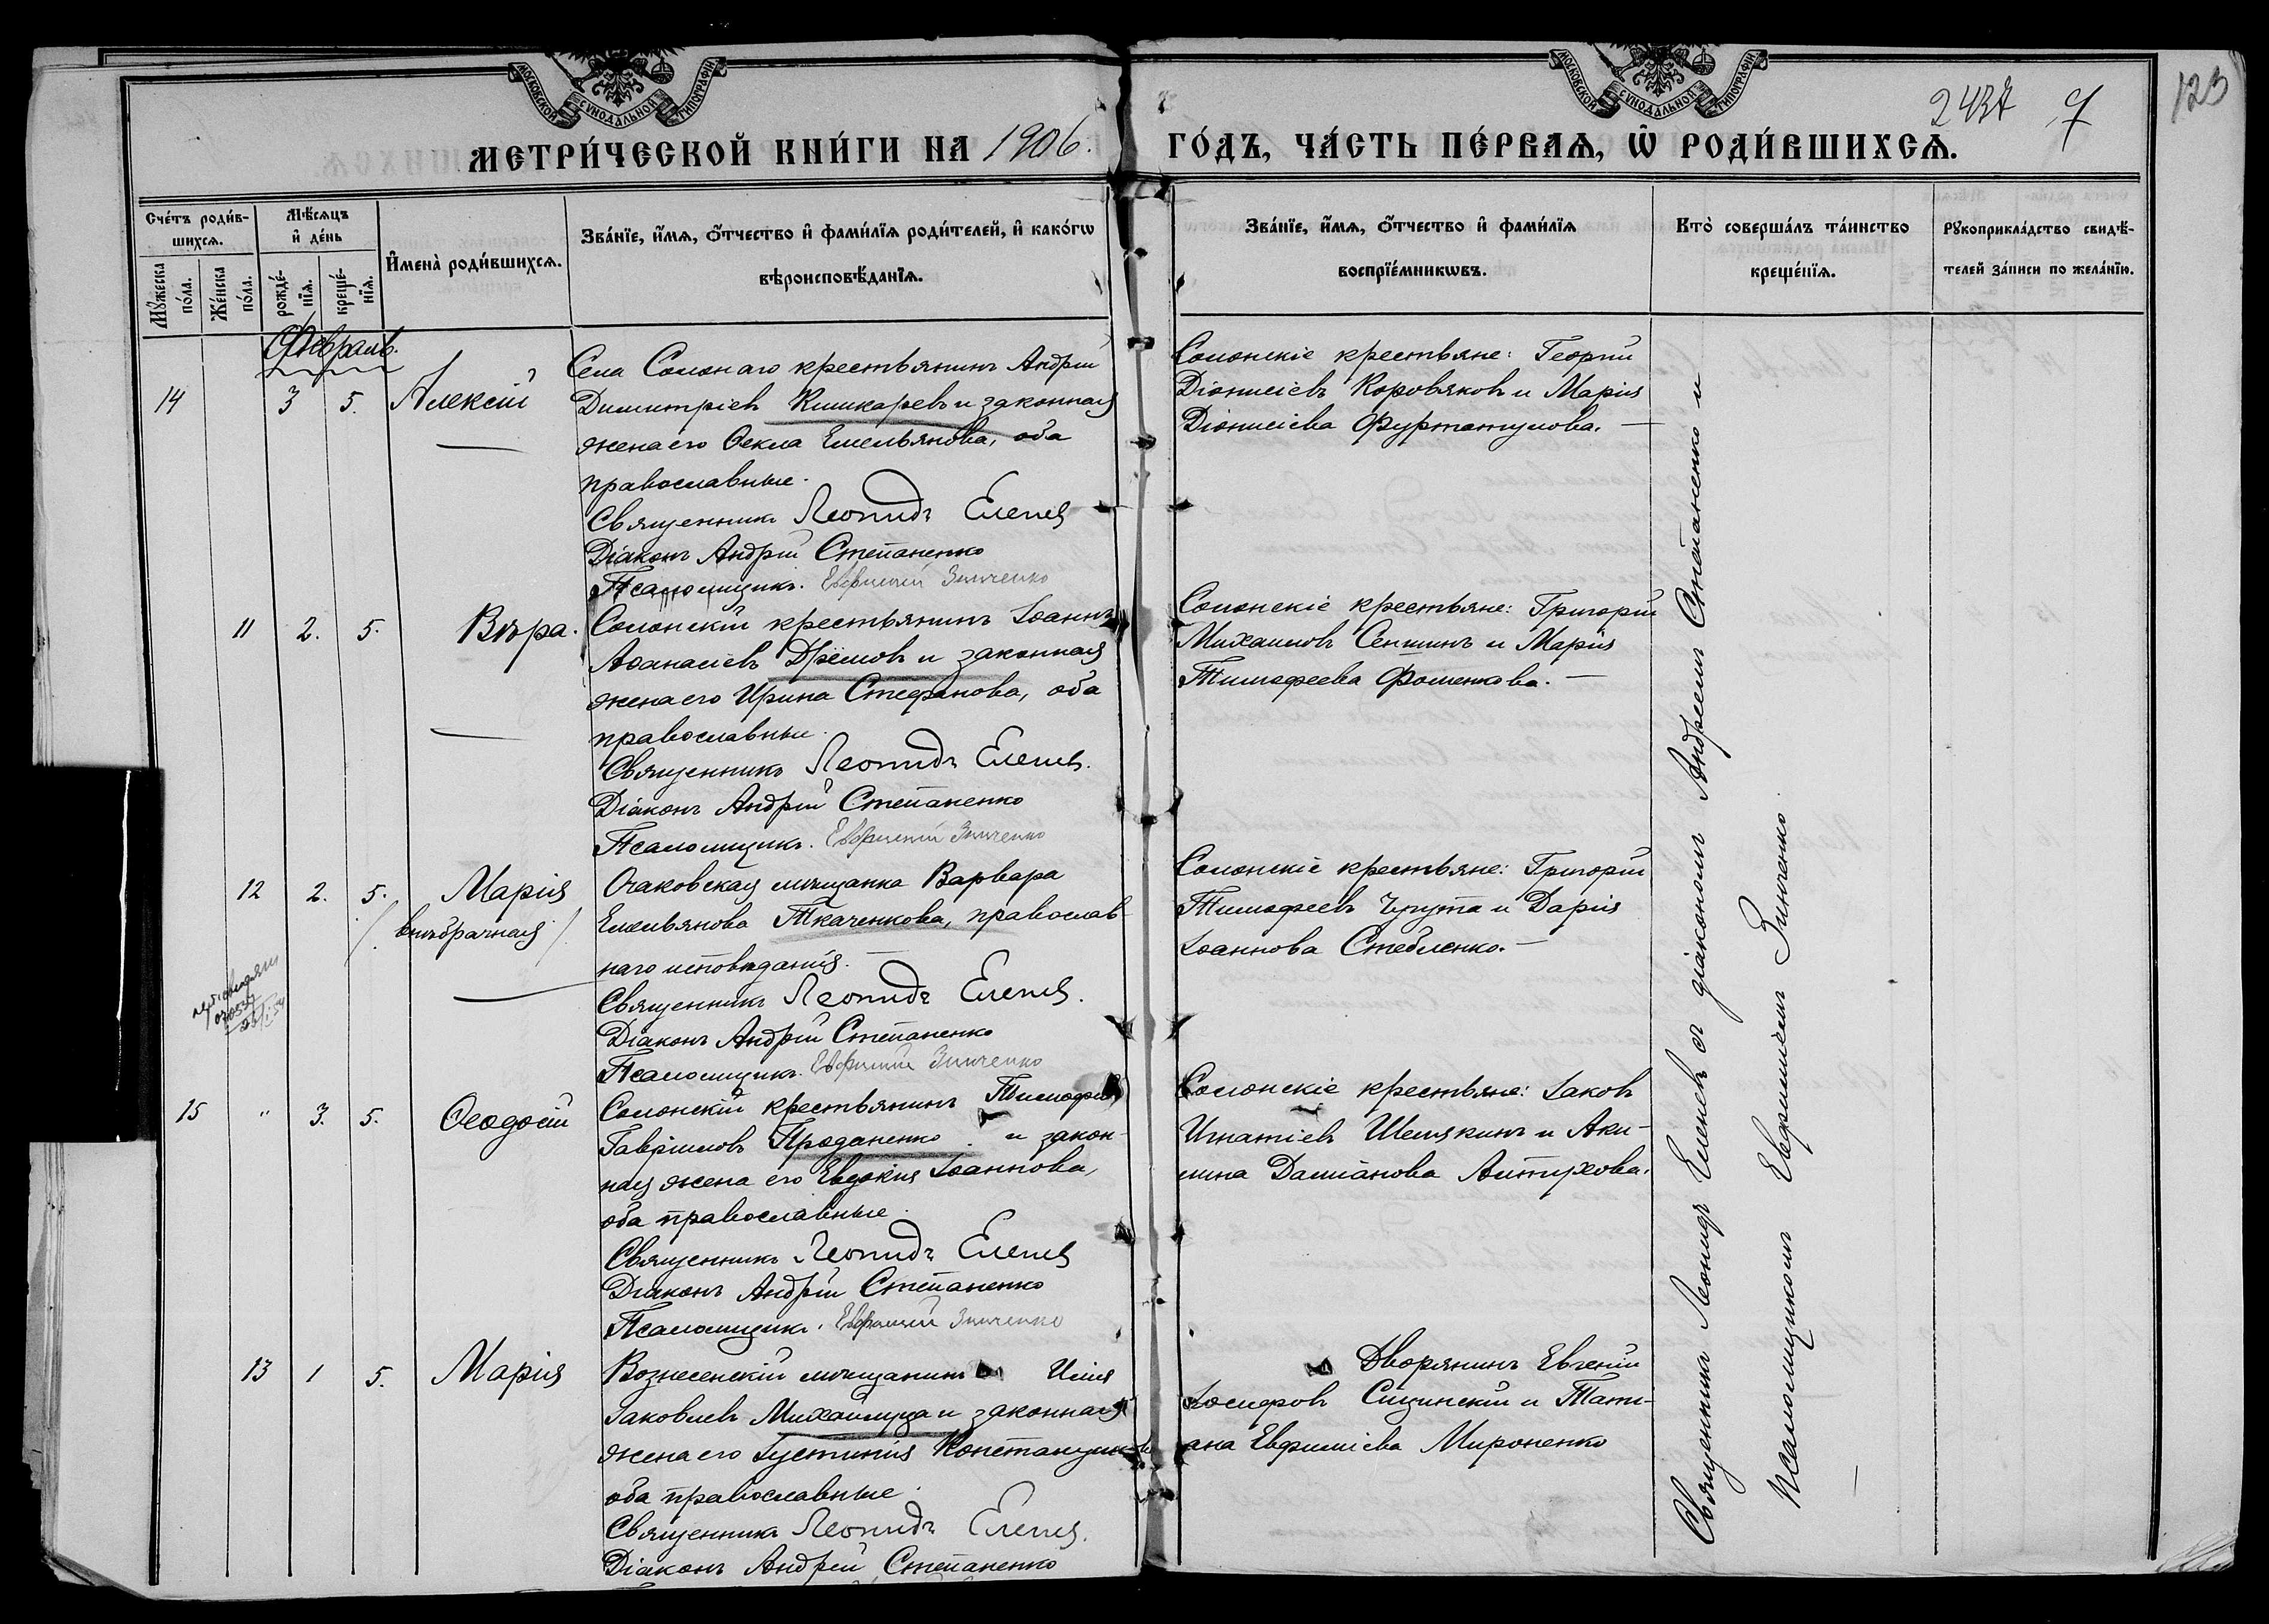 МОСКОВСКОЙ СѴНОДАЛЬНОЙ ТИПОГРАФІИ
МОСКОВСКОЙ СѴНОДАЛЬНОЙ ТИПОГРАФІИ
2437 7
123
МЕТРИ́ЧЕСКОЙ КНИ́ГИ НА 1906.
ГО́ДЪ, ЧА́СТЬ ПЕ́РВАѦ, Ѿ РОДИ́ВШИХСѦ.
Сче́тъ роди́в-
шихсѧ.
Мꙋ́жеска по́ла.
Же́нска по́ла.
Мѣ́сѧцъ и҆ де́нь
рожде́-нїѧ.
креще́-нїѧ.
И҆мена̀ роди́вшихсѧ.
Зва́нїе, и҆́мѧ, ѻ҆́тчество и҆ фами́лїѧ роди́телей, и҆ како́гѡ
вѣроисповѣ́данїѧ.
Зва́нїе, и҆́мѧ, ѻ҆́тчество и҆ фами́лїѧ
воспрїе́мникѡвъ.
Кто̀ соверша́лъ та́инство
креще́нїѧ.
Рꙋкоприкла́дство свидѣ́-
телей за́писи по жела́нїю.
Февраль.
14 3 5. Алексій
Села Солонаго крестьянинъ Андрій
Димитріевъ Кишкаревъ и законная
жена его Ѳекла Емельянова, оба
православные.
Священникъ Леонидъ Еленев
Діаконъ Андрій Степаненко
Псаломщикъ. Евфимій Зинченко
Солонскіе крестьяне: Георгій
Діонисіевъ Коровяковъ и Марія
Діонисіева Фуртатулова. —
11 2. 5. Вѣра.
Солонскій крестьянинъ Іоаннъ
Аѳанасіевъ Дрёмовъ и законная
жена его Ирина Стефанова, оба
православные.
Священникъ Леонидъ Еленев.
Діаконъ Андрій Степаненко
Псаломщикъ. Евфимій Зинченко
Солонскіе крестьяне: Григорій
Михаиловъ Сеншинъ и Марія
Тимофеева Фоменкова. —
12 2. 5. Марія
/ внѣбрачная /
Очаковская мѣщанка Варвара
Емельянова Ткаченкова, православ-
наго исповѣданія. —
Священникъ Леонидъ Еленев.
Діаконъ Андрій Степаненко
Псаломщикъ. Евфимій Зинченко
Солонскіе крестьяне: Григорій
Тимофеевъ Чугута и Дарія
Іоаннова Стебленко. —
15 " 3. 5. Ѳеодосій
Солонскій крестьянинъ Тимофей
Гавріиловъ Проданенко и закон-
ная жена его Евдокія Іоаннова,
оба православные.
Священникъ Леонидъ Еленев
Діаконъ Андрій Степаненко
Псаломщикъ. Евфимій Зинченко
Солонскіе крестьяне: Іаковъ
Игнатіевъ Шемякинъ и Аки-
лина Даміанова Антухова.
13 1 5. Марія
Вознесенскій мѣщанинъ Илія
Іаковлевъ Михайлуца и законная
жена его Іустинія Константинова
оба православные.
Священникъ Леонидъ Еленев.
Діаконъ Андрій Степаненко
Дворянинъ Евгеній
Іосифовъ Сицинскій и Тати-
ана Евфиміева Мироненко
Священникъ Леонидъ Еленевъ съ діакономъ Андреемъ Степаненко и
псаломщикомъ Евфиміемъ Зинченко.